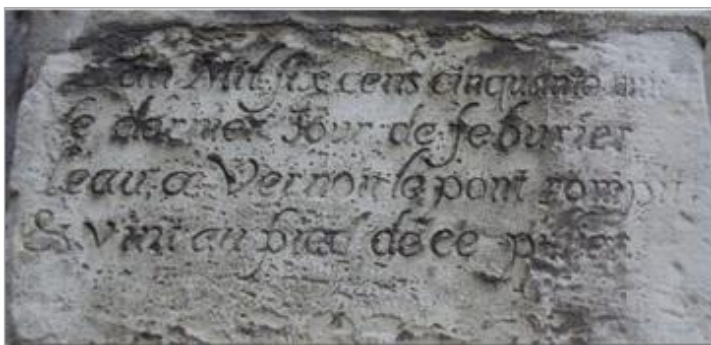 L'an Mil six cens cinquante huit
le dernier Jour de feburier
Leau a Vernon le pont rompit
& vint au pied de ce pilier